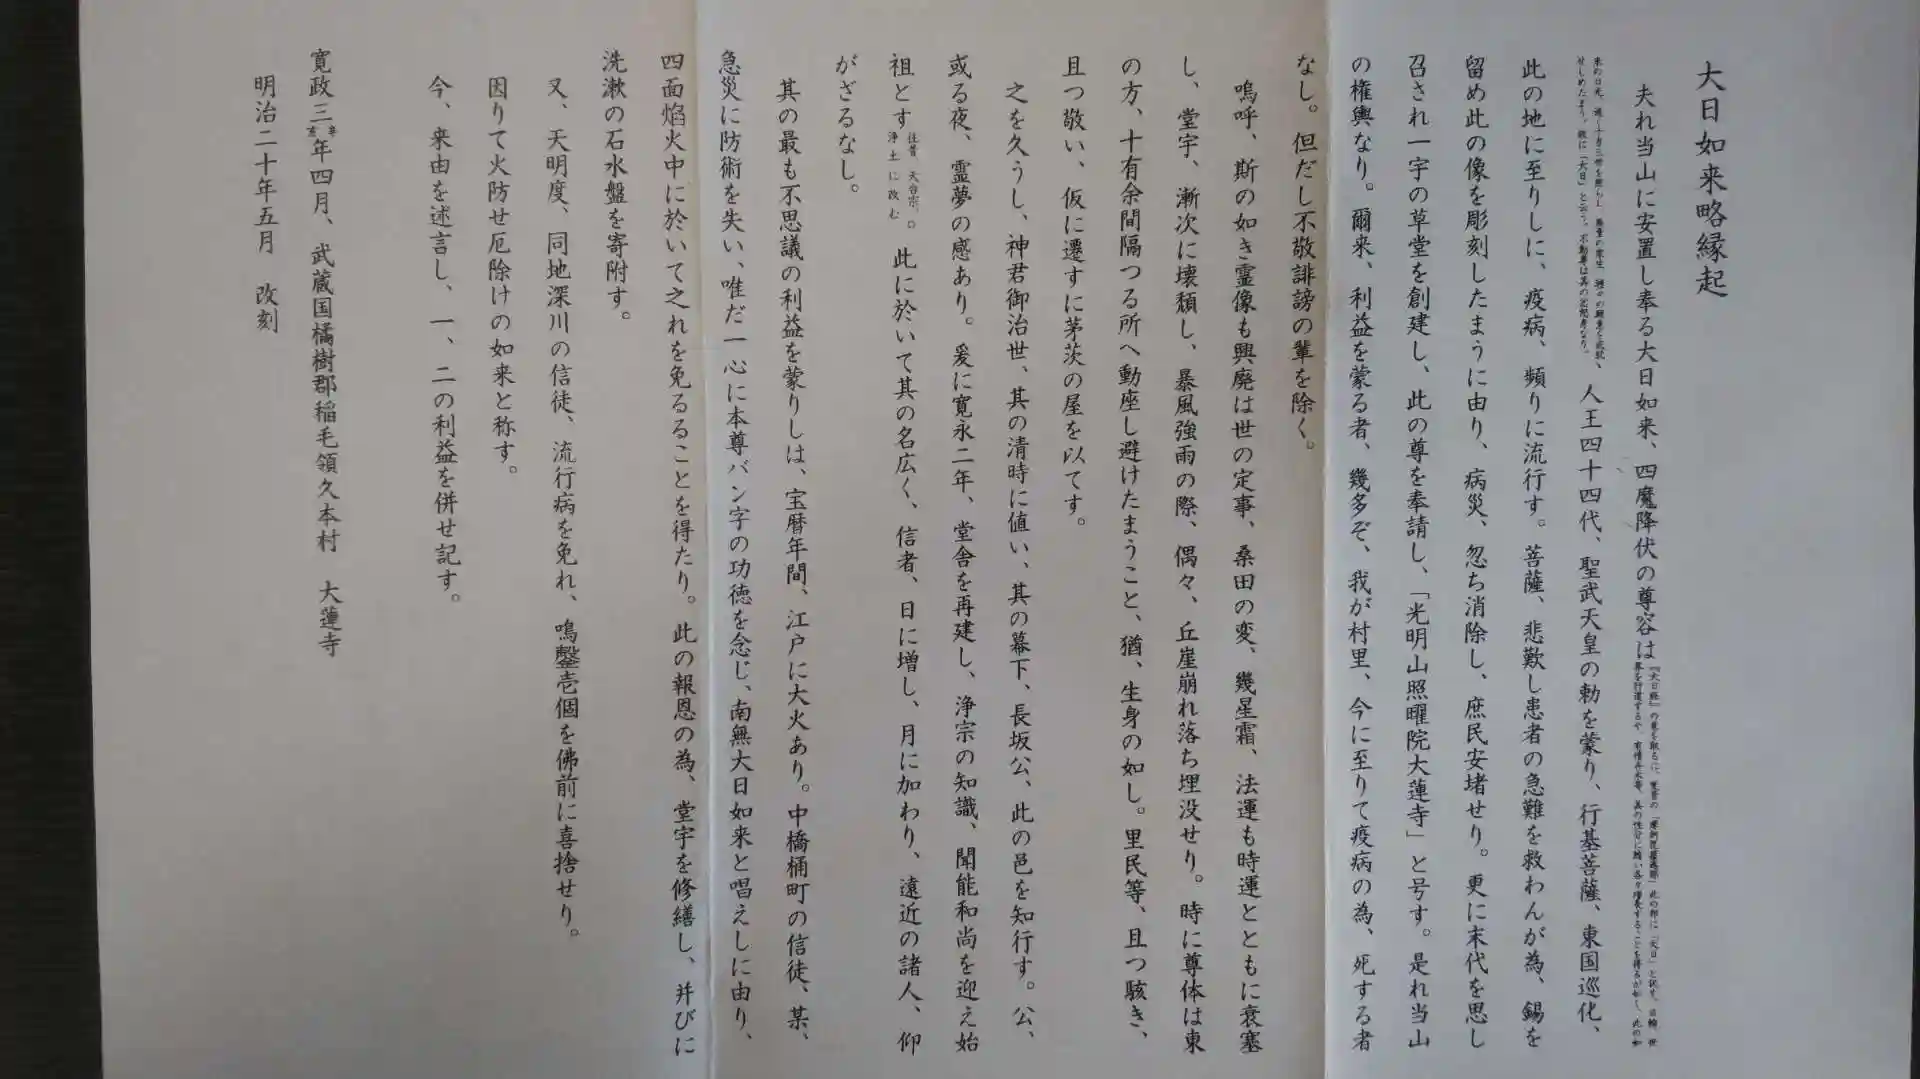 大日如来略縁起
夫れ当山に安置し奉る大日如来、四魔降伏の尊容は
せしめたまう。故に「大日」と云う。不動尊は其の
、人王四十四代、聖武天皇の勅を蒙り、行基菩薩、東国巡化、
此の地に至りしに、疫病、頻りに流行す。菩薩、悲歎し患者の急難を救わんが為、錫を
留め此の像を彫刻したまうに由り、病災、忽ち消除し、庶民安堵せり。更に末代を思し
召され一宇の草堂を創建し、此の尊を奉請し、「光明山照曜院大蓮寺」と号す。是れ当山
の権輿なり。爾来、利益を蒙る者、幾多ぞ、我が村里、今に至りて疫病の為、死する者
なし。但だし不敬誹謗の輩を除く。
嗚呼、斯の如き霊像も興廃は世の定事、桑田の変、幾星霜、法運も時運とともに衰塞
し、堂宇、漸次に壊頽し、暴風強雨の際、偶々、丘崖崩れ落ち埋没せり。時に尊体は東
の方、十有余間隔つる所へ動座し避けたまうこと、猶、生身の如し。里民等、且つ駭き、
且つ敬い、仮に遷すに茅茨の屋を以てす。
之を久うし、神君御治世、其の清時に値い、其の幕下、長坂公、此の邑を知行す。公、
或る夜、霊夢の感あり。爰に寛永二年、堂舎を再建し、浄宗の知識、聞能和尚を迎え始
祖とす往昔 天台宗、浄土に改む。此に於いて其の名広く、信者、日に増し、月に加わり、遠近の諸人、仰
がざるなし。
其の最も不思議の利益を蒙りしは、宝暦年間、江戸に大火あり。中橋桶町の信徒、某、
急災に防術を失い、唯だ一心に本尊バン字の功徳を念じ、南無大日如来と唱えしに由り、
四面焰火中に於いて之れを免るることを得たり。此の報恩の為、堂宇を修繕し、并びに
洗漱の石水盤を寄附す。
又、天明度、同地深川の信徒、流行病を免れ、鳴鏧壱個を佛前に喜捨せり。
因りて火防せ厄除けの如来と称す。
今、来由を述言し、一、二の利益を併せ記す。
寛政三辛亥年四月、武蔵国橘樹郡稲毛領久本村 大蓮寺
明治二十年五月 改刻